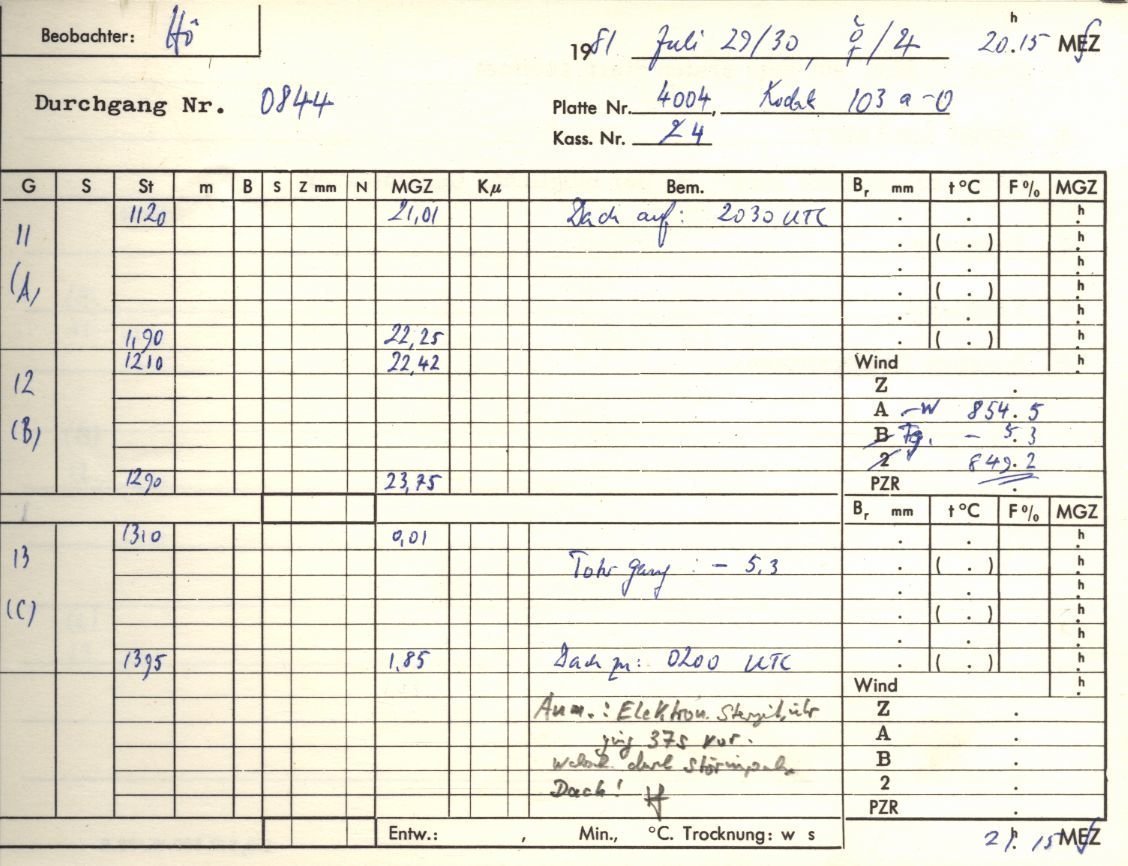 Beobachter: Hö
1981 Juli 29/30, ☿/♃ 20.15 h MEZ
Durchgang Nr. 0844
Platte Nr. 4004, Kodak 103 a-O
Kass. Nr. Z4
G S St m B S Z mm N MGZ Kµ Bem. Br mm t °C F % MGZ
11 1120 21,01 Dach auf: 2030 UTC . . h
. ( . ) h
(A) . . h
. ( . ) h
. . h
1190 22,25 . ( . ) h
1210 22,42 Wind h
12 Z .
A -W 854.5
(B) B Tg. - 5.3
2 849.2
1290 23,75 PZR .
Br mm t °C F % MGZ
1310 0,01 . . h
13 Tohrgang : - 5.3 . ( . ) h
. . h
(C) . ( . ) h
. . h
1395 1,85 Dach zu: 0200 UTC . ( . ) h
Wind h
Anm.: Elektron. Sternzeituhr Z .
ging 37s vor. A .
durch Störimpulse B .
Dach! 2 .
PZR .
Entw.: , Min., °C. Trocknung: w s 21.15 h MEZ